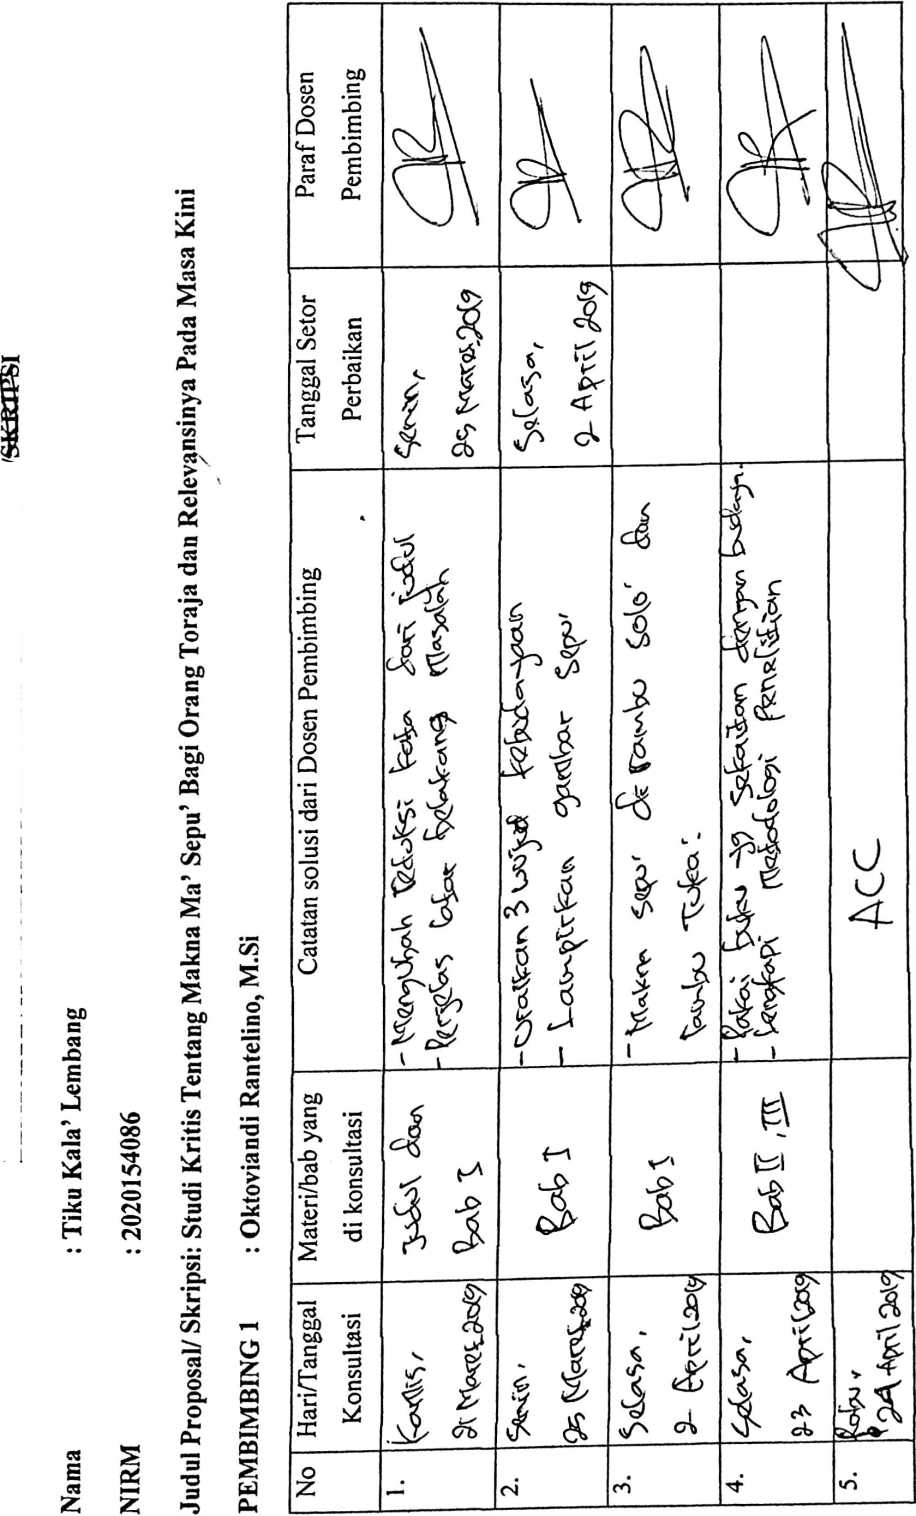 /SKRIPSI
Nama : Tiku Kala' Lembang
NIRM : 2020154086
Judul Proposal/ Skripsi: Studi Kritis Tentang Makna Ma' Sepu' Bagi Orang Toraja dan Relevansinya Pada Masa Kini
PEMBIMBING 1 : Oktoviandi Rantelino, M.Si
No Hari/Tanggal Konsultasi Materi/bab yang di konsultasi Catatan solusi dari Dosen Pembimbing Tanggal Setor Perbaikan Paraf Dosen Pembimbing
1. Kamis, 21 Maret 2019
Judul dan Bab I
- Mengubah reduksi kata dari judul
- Perjelas latar belakang masalah
Senin, 25 Maret 2019
2. Senin, 25 Maret 2019
Bab I
- Uraikan 3 wujud kebudayaan
- Lampirkan gambar sepu'
Selasa, 2 April 2019
3. Selasa, 2 April 2019
Bab I
- Makna sepu' di rambu solo' dan
rambu tuka'.
4. Selasa, 23 April 2019
Bab II, III
- Pakai buku yg sekaitan dengan budaya.
- Lengkapi Metodologi Penelitian
5. Rabu, 24 April 2019
ACC